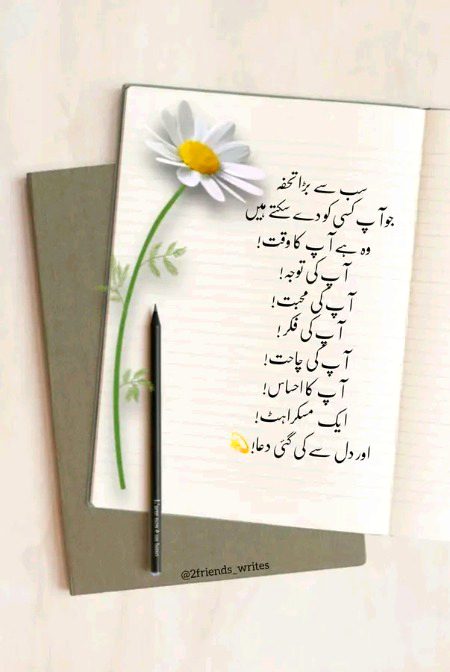 سب سے بڑا تحفہ
جو آپ کسی کو دے سکتے ہیں
وہ ہے آپ کا وقت!
آپ کی توجہ!
آپ کی محبت!
آپ کی فکر!
آپ کی چاہت!
آپ کا احساس!
ایک مسکراہٹ!
اور دل سے کی گئی دعا!💫
@2friends_writes